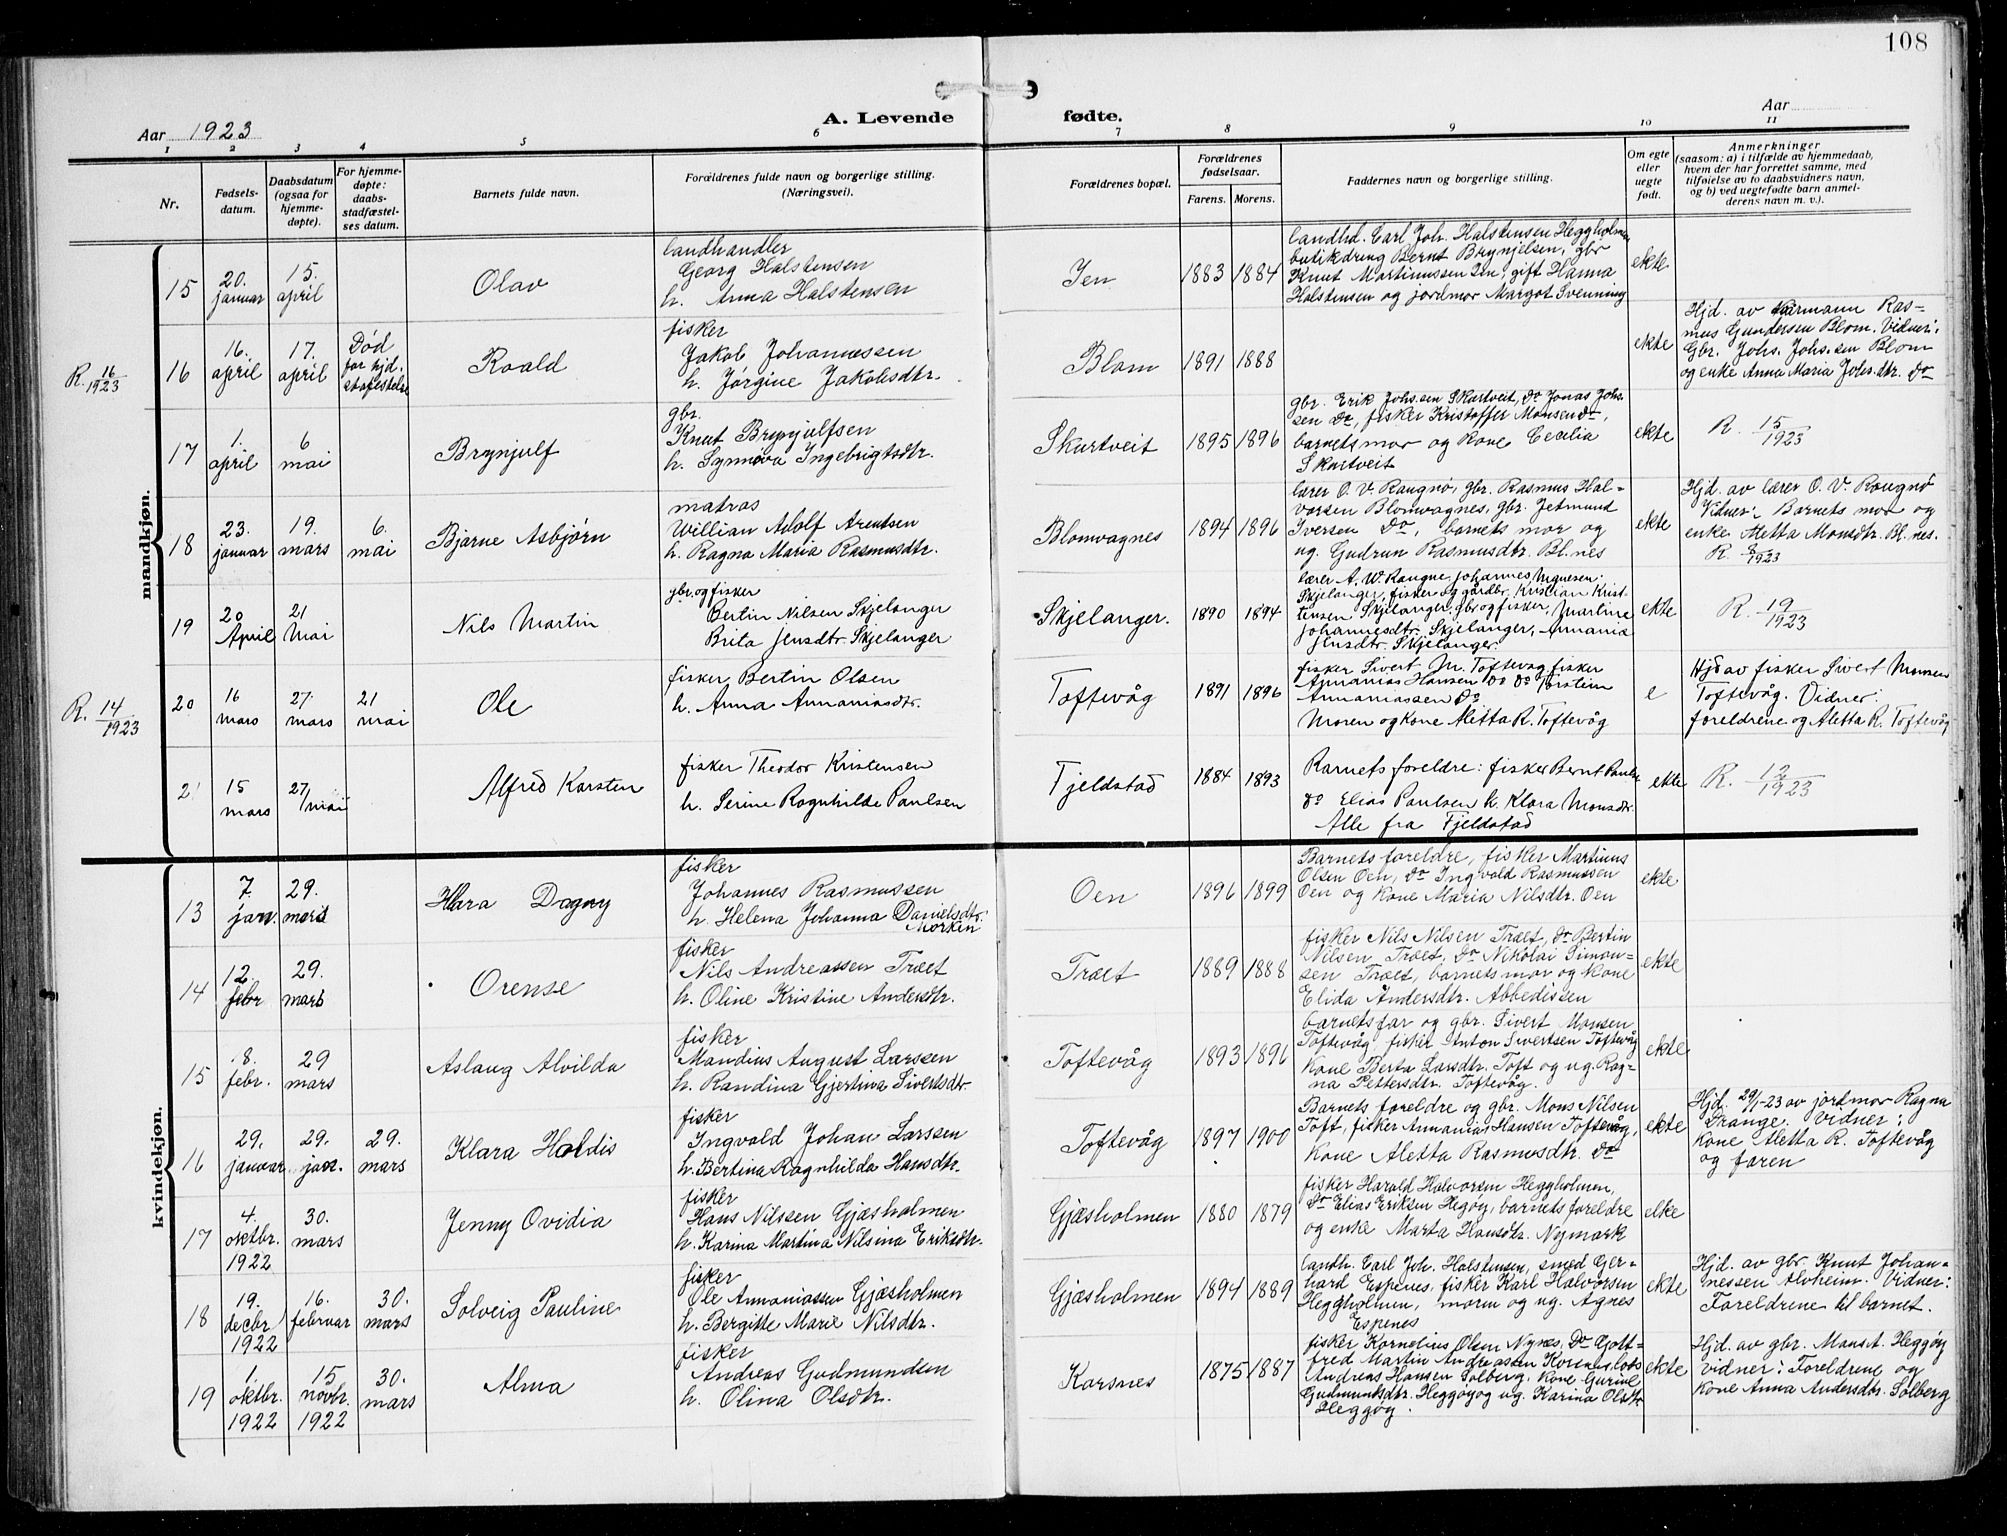 108
Aar 1923
A. Levende
fødte.
Aar
1 2 3 4 5 6 7 8 9 10 11
Nr.
Fødsels-
datum.
Daabsdatum
(ogsaa for
hjemme-
døpte).
For hjemme-
døpte:
daabs-
stadfæstel-
ses datum.
Barnets fulde navn.
Forældrenes fulde navn og borgerlige stilling.
(Næringsvei).
Forældrenes bopæl.
Forældrenes
fødselsaar.
Farens. Morens.
Faddernes navn og borgerlige stilling.
Om egte
eller
uegte
født.
Anmerkninger
(saasom: a) i tilfælde av hjemmedaab,
hvem der har forrettet samme, med
tilføielse av to daabsvidners navn,
og b) ved uegtefødte barn anmel-
derens navn m. v.).
mandkjøn.
15
20.
januar
15.
april
Olav
landhandler
Georg Halstensen
h. Anna Halstensen
Øen
1883 1884
landhd. Carl Joh. Halstensen Heggholmen
butikdreng Bernt Brynjelsen, gbr
Knut Martinussen Øen, gift Hanna
Halstensen og jordmor Margot Svenning
ekte
R. 16/1923
16
16.
april
17.
april
Død
før hjd.
stafestelse
Roald
fisker
Jakob Johannessen
h. Jørgine Jakobsdtr.
Blom
1891 1888
ekte
Hjd. av kårmann Ras-
mus Gundersen Blom. Vidner:
Gbr. Johs. Johs.sen Blom
og enke Anna Maria Johs.dtr. do
17
1.
april
6
mai
Brynjulf
gbr.
Knut Brynjulfsen
h. Synnøva Ingebrigtsdtr.
Skurtveit
1895 1896
gbr. Erik Johs.sen Skurtveit, do Jonas Johs.
sen do, fisker Kristoffer Monsen do,
barnets mor og kone Cecilia
Skurtveit
ekte
R. 15/1923
18
23.
januar
19.
mars
6.
mai
Bjarne Asbjørn
matros
Willian Adolf Arentsen
h. Ragna Maria Rasmusdtr.
Blomvagnes
1894 1896
lærer O. V. Raugnø, gbr. Rasmus Hal-
vorsen Blomvagnes, gbr. Jetmund
Iversen do, barnets mor og
ug. Gudrun Rasmusdtr. Bl.nes
ekte
Hjd. av lærer O. V. Rougnø
Vidner: Barnets mor og
enke Metta Monsdtr. Bl.nes.
R. 8/1923
19
20
April
21
Mai
Nils Martin
gbr. og fisker
Bertin Nilsen Skjelanger
Brita Jensdtr. Skjelanger
Skjelanger.
1890 1894
lærer A. W. Raugne, Johannes Mgnesen.
Skjelanger, fisker og gårdbr. Kristian Krist-
tensen Skjelanger, gbr og fisker, Martine
Johannesdtr. Skjelanger, Annania
Jensdtr. Skjelanger.
ekte
R. 19/1923
R. 14/1923
20
16
mars
27.
mars
21
mai
Ole
fisker Bertin Olsen
h. Anna Annaniasdtr.
Toftevåg
1891 1896
fisker Sivert M. Toftevåg, fisker
Annanias Hansen do do Torstein
Annaniassen do
Moren og kone Aletta R. Toftevåg
e
Hjd av fisker Sivert Monsen
Toftevåg. Vidner:
foreldrene og Aletta R. Toftevåg
2
15
mars
27/mai
Alfred Karsten
fisker Theodor Kristensen
h. Serine Rognhilde Paulsen
Fjeldstad
1884 1893
Barnets foreldre: fisker Bernt Paulsen
do Elias Paulsen h. Klara Monsdtr.
Alle fra Fjeldstad
ekte
R. 12/1923
kvindekjøn.
13
7.
jan.
29.
mars
Klara Dagny
fisker
Johannes Rasmussen
h. Helena Johanna Danielsdtr.
Morken
Oen
1896 1899
Barnets foreldre, fisker Martinus
Olsen Oen, do Ingvald Rasmussen
Oen og Kone Maria Nilsdtr. Oen
ekte
14
12.
febr
29.
mars
Orense
fisker
Nils Andreassen Træet
h. Oline Kristine Andersdtr.
Træet
1889 1888
fisker Nils Nilsen Træet, do Bertin
Nilsen Træet, do Nikolai Simon-
sen Træet, barnets mor og kone
Elida Andersdtr. Abbedissen
ekte
15
8.
febr.
29
mars
Aslaug Alvilda
fisker
Mandius August Larssen
h. Randina Gjertina Sivertsdtr.
Toftevåg
1893 1891
barnets far og gbr. Sivert Monsen
Toftevåg, fisker Anton Sivertsen Toftevåg
Kone Berta Larsdtr. Toft og ug. Rag-
na Pettersdtr. Toftevåg.
ekte
16
29.
januar
29.
jan.
29.
mars
Klara Haldis
fisker
Ingvald Johan Larssen
h. Bertina Ragnhilda Hansdtr.
Toftevåg
1897 1900
Barnets foreldre og gbr. Mons Nilsen
Toft, fisker Annanias Hansen Toftevåg,
Kone Aletta Rasmusdtr. do
ekte
Hjd. 29/1-23 av jordmor Ragna
Drange. Vidner:
Kone Aletta R. Toftevåg
og faren
17
4.
oktbr.
1922
30.
mars
Jenny Ovidia
fisker
Hans Nilssen Gjæsholmen
h. Karina Martina Nilsina Eriksdtr.
Gjæsholmen
1880 1879
fisker Harald Halvorsen Heggholmen,
do Elias Eriksen Hegøy, barnets foreldre
og enke Marta Hansdtr. Nymark
ekte
18
19.
decbr
1922
16.
februar
30.
mars
Solveig Pauline
fisker
Ole Annaniassen Gjæsholmen
h. Bergitte Marie Nilsdtr.
Gjæsholmen
1894 1889
landh. Carl Joh. Halstensen, smed Ger-
hard Espenes, fisker Karl Halvorsen
Heggholmen, moren og ug. Agnes
Espenes
ekte
Hjd. av gbr. Knut Johan-
nessen Alvheim. Vidner:
Foreldrene til barnet.
19
1.
oktbr.
1922
15
novbr.
1922
30.
mars
Alma
fisker
Andreas Gudmundsen
h. Olina Olsdtr.
Karsnes
1875 1887
fisker Kornelius Olsen Nynes, do Gott-
fred Martin Andreassen
Andreas Hansen Solberg, Kone Gurine
Gudmundsdtr. Heggøy og ug. Karina Olsdtr
Heggøy.
ekte
Hjd. av gbr. Mons A. Heggøy
vidner: Foreldrene og
Kone Anna Andersdtr. Solberg